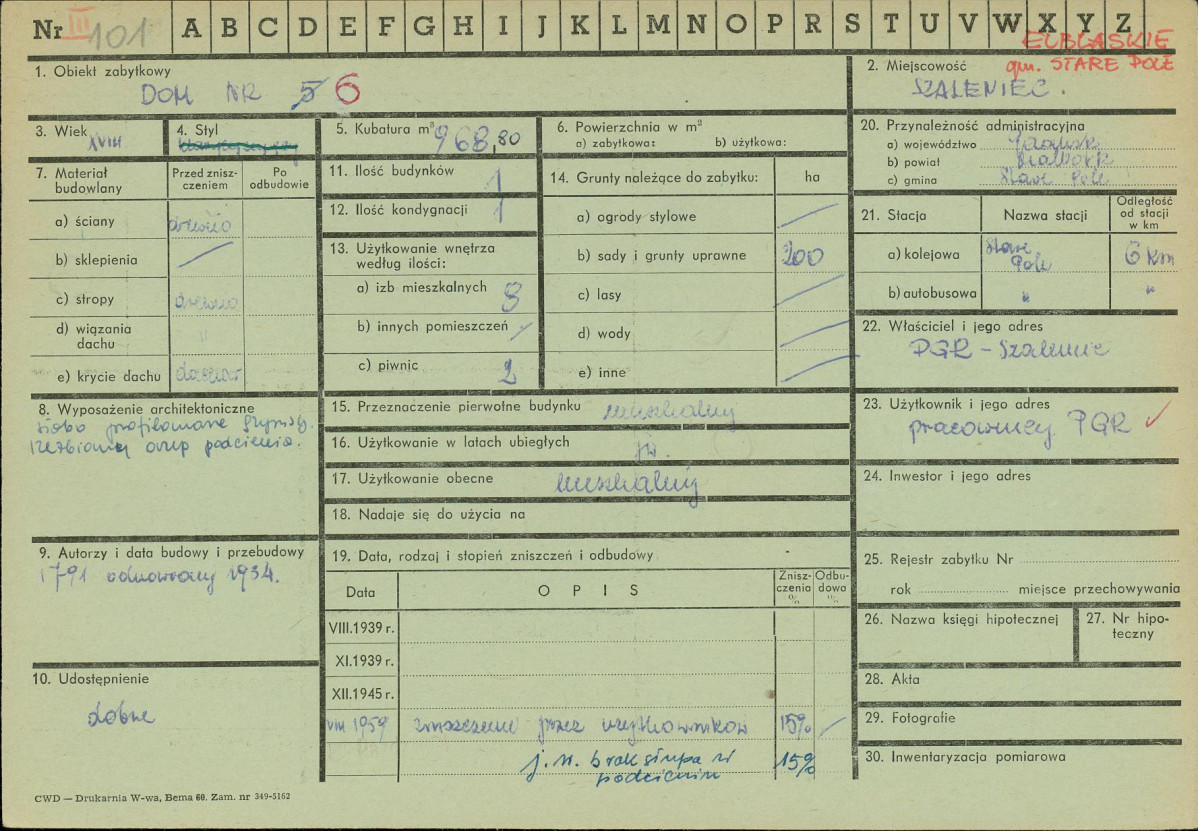 Nr III 101 A B C D E F G H I J K L M N O P R S T U V W X Y Z
ELBLĄSKIE
gm. STARE POLE
1. Obiekt zabytkowy
DOM NR 5 6
2. Miejscowość
SZALENIEC.
3. Wiek
XVIII
4. Styl
5. Kubatura m³
968,80
6. Powierzchnia w m²
a) zabytkowa: b) użytkowa:
20. Przynależność administracyjna
a) województwo Gdańsk
b) powiat Malbork
c) gmina Stare Pole
7. Materiał budowlany
Przed znisz-
czeniem
Po
odbudowie
a) ściany drewno
b) sklepienia /
c) stropy drewno
d) wiązania
dachu "
e) krycie dachu
11. Ilość budynków 1
12. Ilość kondygnacji 1
13. Użytkowanie wnętrza
według ilości:
a) izb mieszkalnych 8
b) innych pomieszczeń /
c) piwnic 2
14. Grunty należące do zabytku: ha
a) ogrody stylowe /
b) sady i grunty uprawne 200
c) lasy /
d) wody /
e) inne /
21. Stacja Nazwa stacji
Odległość
od stacji
w km
a) kolejowa Stare
Pole 6 km
b) autobusowa " "
22. Właściciel i jego adres
PGR – Szaleniec
8. Wyposażenie architektoniczne
profilowane
słup podcienia.
15. Przeznaczenie pierwotne budynku mieszkalny
16. Użytkowanie w latach ubiegłych jw.
17. Użytkowanie obecne mieszkalny
18. Nadaje się do użycia na
23. Użytkownik i jego adres
pracownicy PGR
24. Inwestor i jego adres
9. Autorzy i data budowy i przebudowy
1791 odnowiony 1934.
19. Data, rodzaj i stopień zniszczeń i odbudowy
Data O P I S
Znisz-
czenia
%
Odbu-
dowa
%
VIII.1939 r.
XI.1939 r.
XII.1945 r.
VIII 1959 zniszczenie przez użytkowników 15% /
j.w. brak słupa w
podcieniu 15%
25. Rejestr zabytku Nr
rok miejsce przechowywania
26. Nazwa księgi hipotecznej
27. Nr hipo-
teczny
10. Udostępnienie
dobre
28. Akta
29. Fotografie
30. Inwentaryzacja pomiarowa
CWD — Drukarnia W-wa, Bema 60. Zam. nr 349-5162